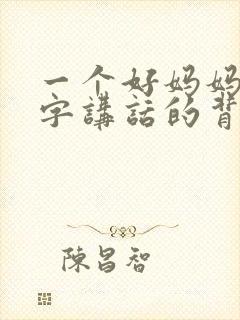 一个好妈妈
字講話的背
陳昌智